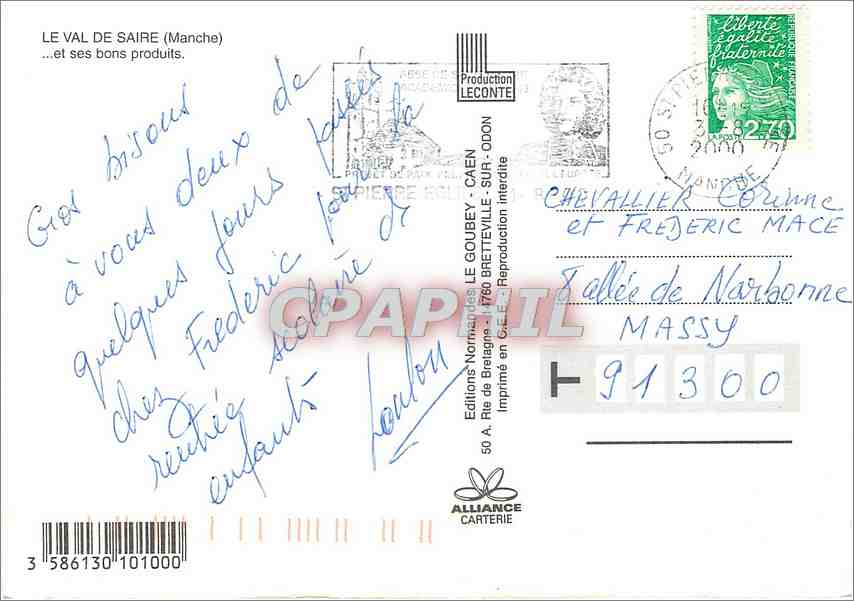 LE VAL DE SAIRE (Manche)
...et ses bons produits.
Gros bisous
à vous deux de
quelques jours passés
chez Frédéric pour la
rentrée scolaire de
enfants
Loulou
Production
LECONTE
Editions Normandes LE GOUBEY - CAEN
50 A. Rte de Bretagne - 14760 BRETTEVILLE - SUR - ODON
Imprimé en C.E.E. - Reproduction interdite
liberté
égalité
fraternité
REPUBLIQUE FRANÇAISE
LA POSTE
2,70
50 ST PIERRE
2000
MANCHE
ST PIERRE EGLISE
CHEVALLIER Corinne
et FREDERIC MACE
8 allée de Narbonne
MASSY
91300
ALLIANCE
CARTERIE
3 586130 101000
CPAPHIL